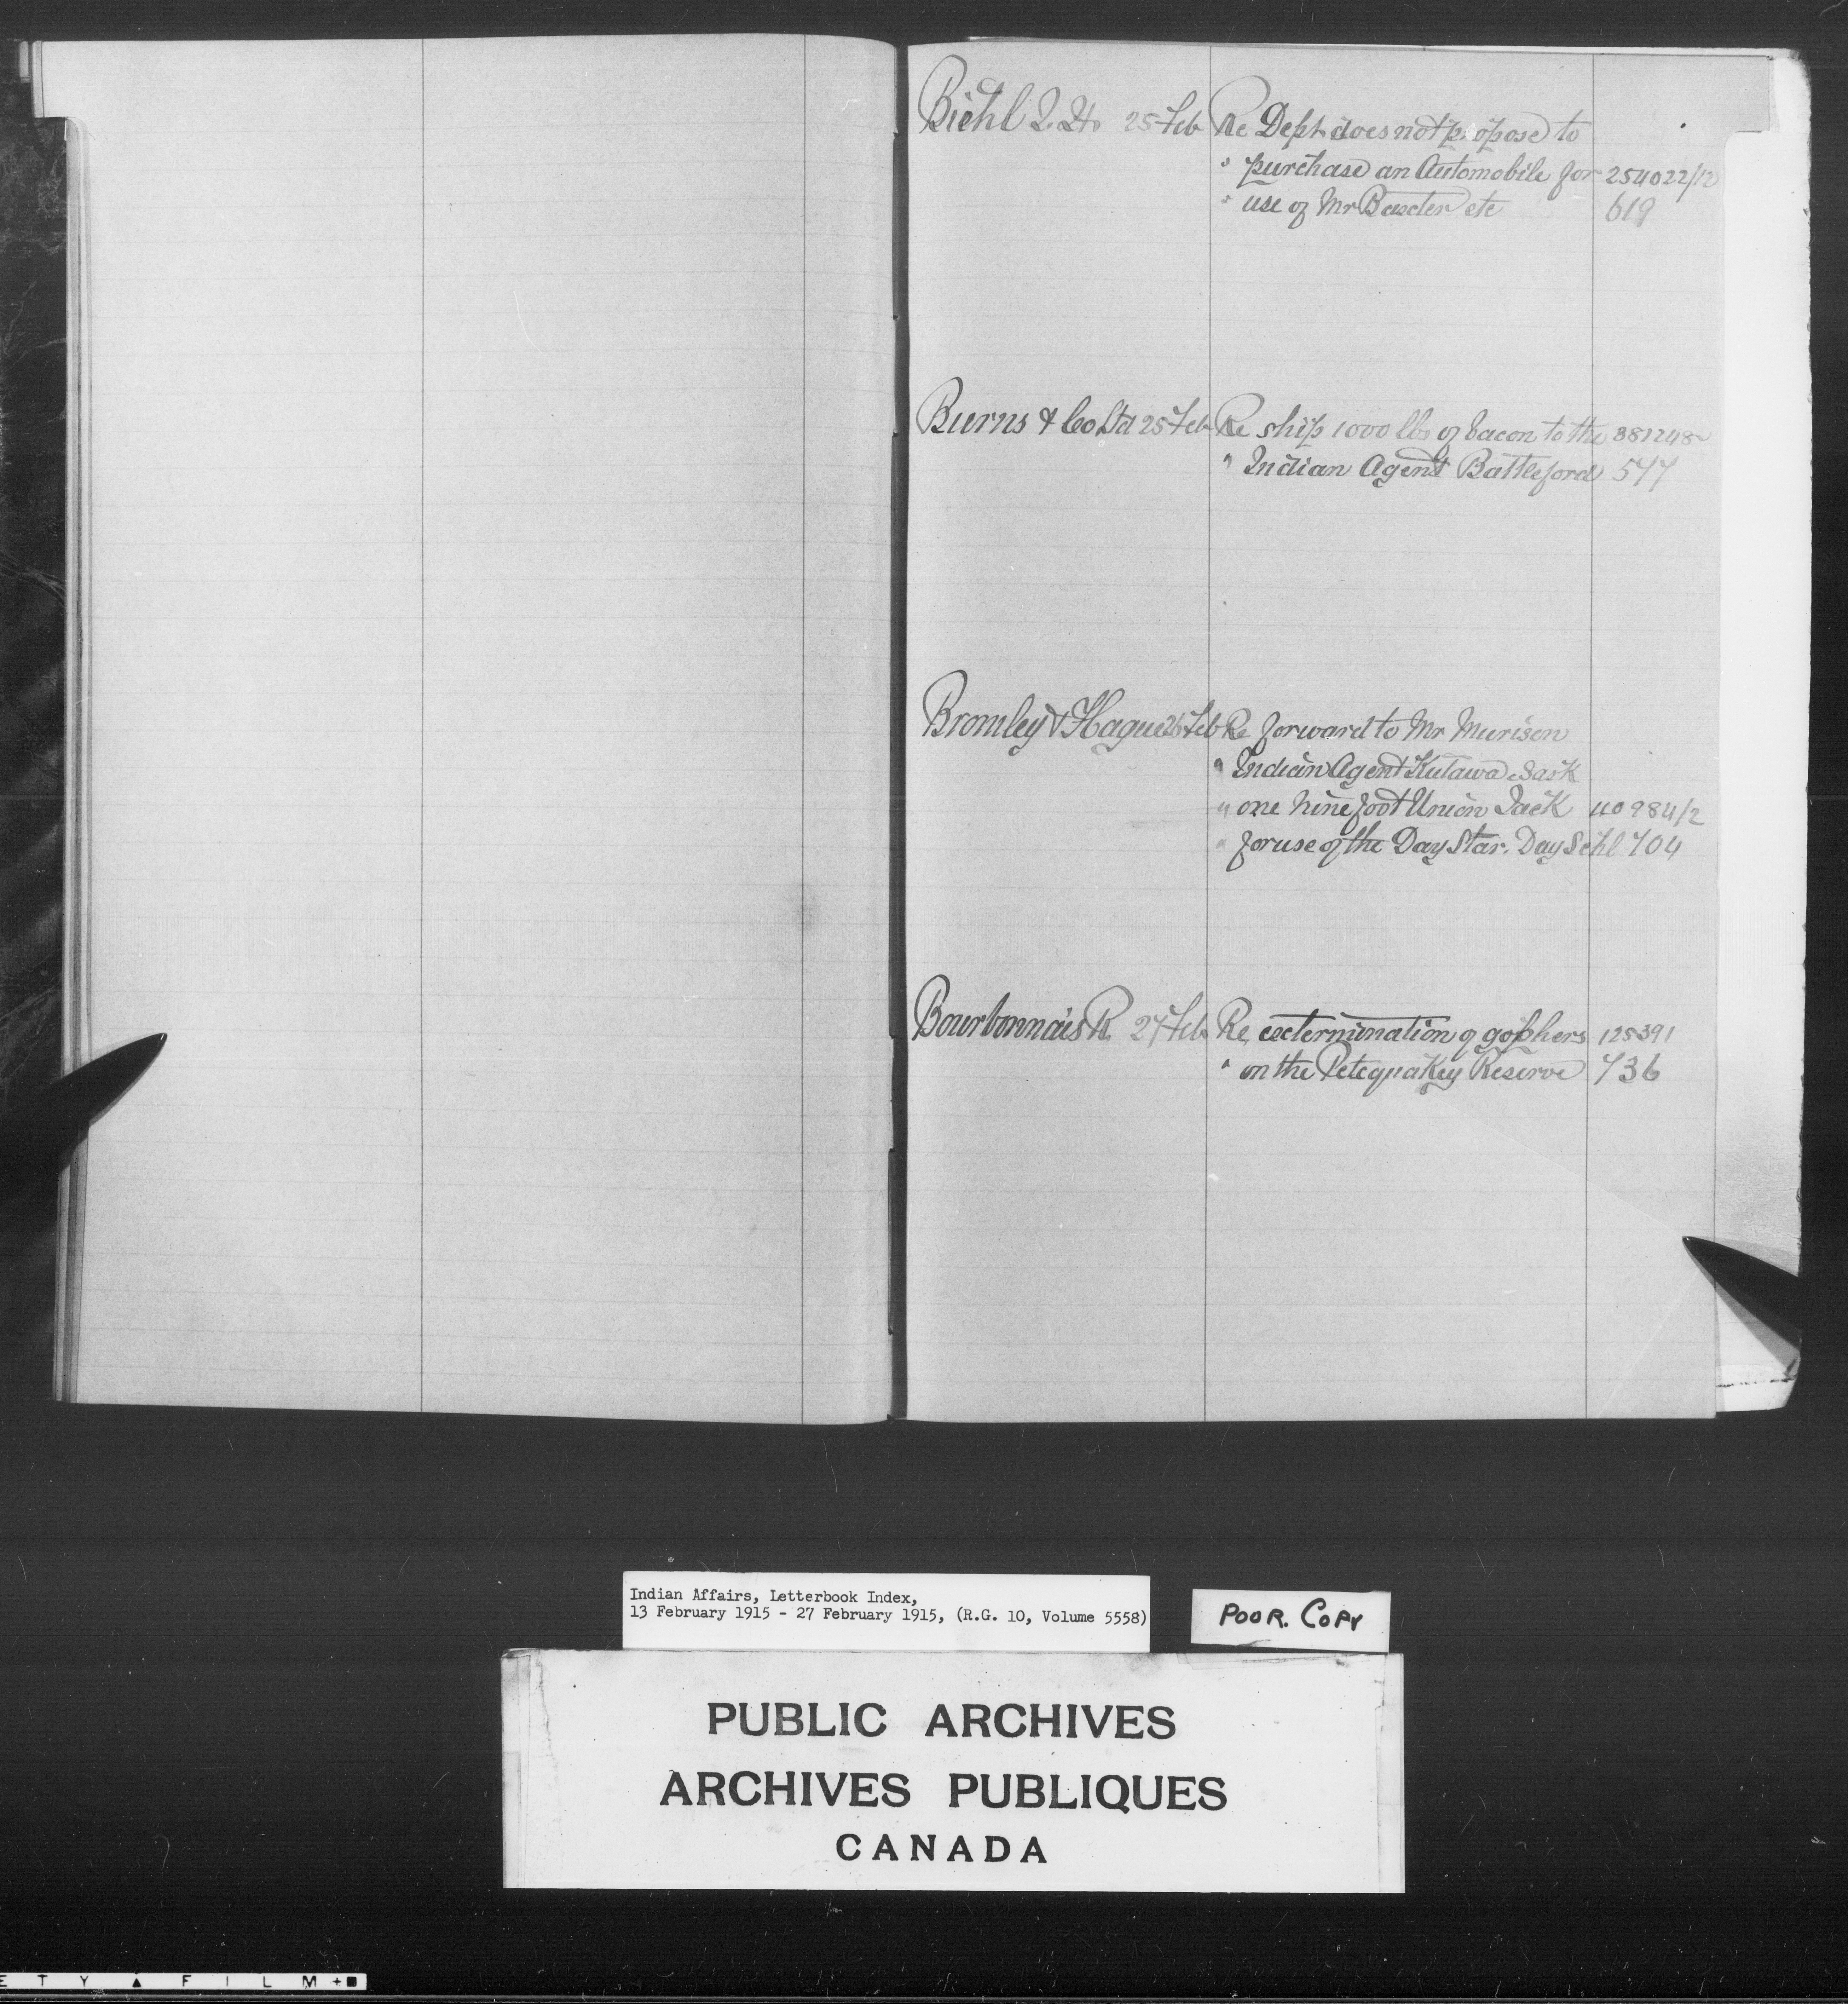 Biehl 25 Feb Re Dept. does not propose to
" purchase an Automobile for 254022/12
" use of Mr Baxter etc 619
Burns & Co Ltd 25 Feb Re ship 1000 lbs of bacon to the 381248
" Indian Agent Battleford 577
Bromley & Hague 26 Feb Re forward to Mr Murison
" Indian Agent Kutawa Sask
" one nine foot Union Jack 40984/2
" for use of the Day Star. Day Schl 704
Bourbonnais R. 27 Feb Re extermination of gophers 125391
" on the Petequakey Reserve 736
Indian Affairs, Letterbook Index,
13 February 1915 - 27 February 1915, (R.G. 10, Volume 5558)
POOR. COPY
PUBLIC ARCHIVES
ARCHIVES PUBLIQUES
CANADA
E T Y ▲ F I L M + ■